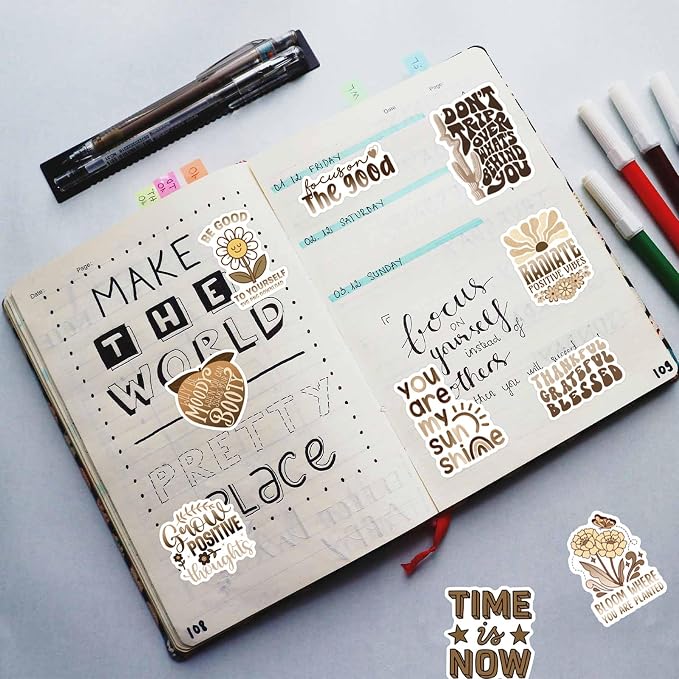 TH
Date:
Page:
MAKE
THE
WORLD
PRETTY
place
BE GOOD
TO YOURSELF
MOODY
BOOTY
Grow
POSITIVE
thoughts
108
Date
Page:
01.12 FRIDAY
02.12 SATURDAY
03.12 SUNDAY
focus on
the good
DON'T
TRIP
OVER
WHAT'S
BEHIND
YOU
RADIATE
POSITIVE VIBES
focus
on
yourself
instead of
others
then you will succeed
you
are
my
sun
shine
THANKFUL
GRATEFUL
BLESSED
109
TIME
is
NOW
BLOOM WHERE
YOU ARE PLANTED